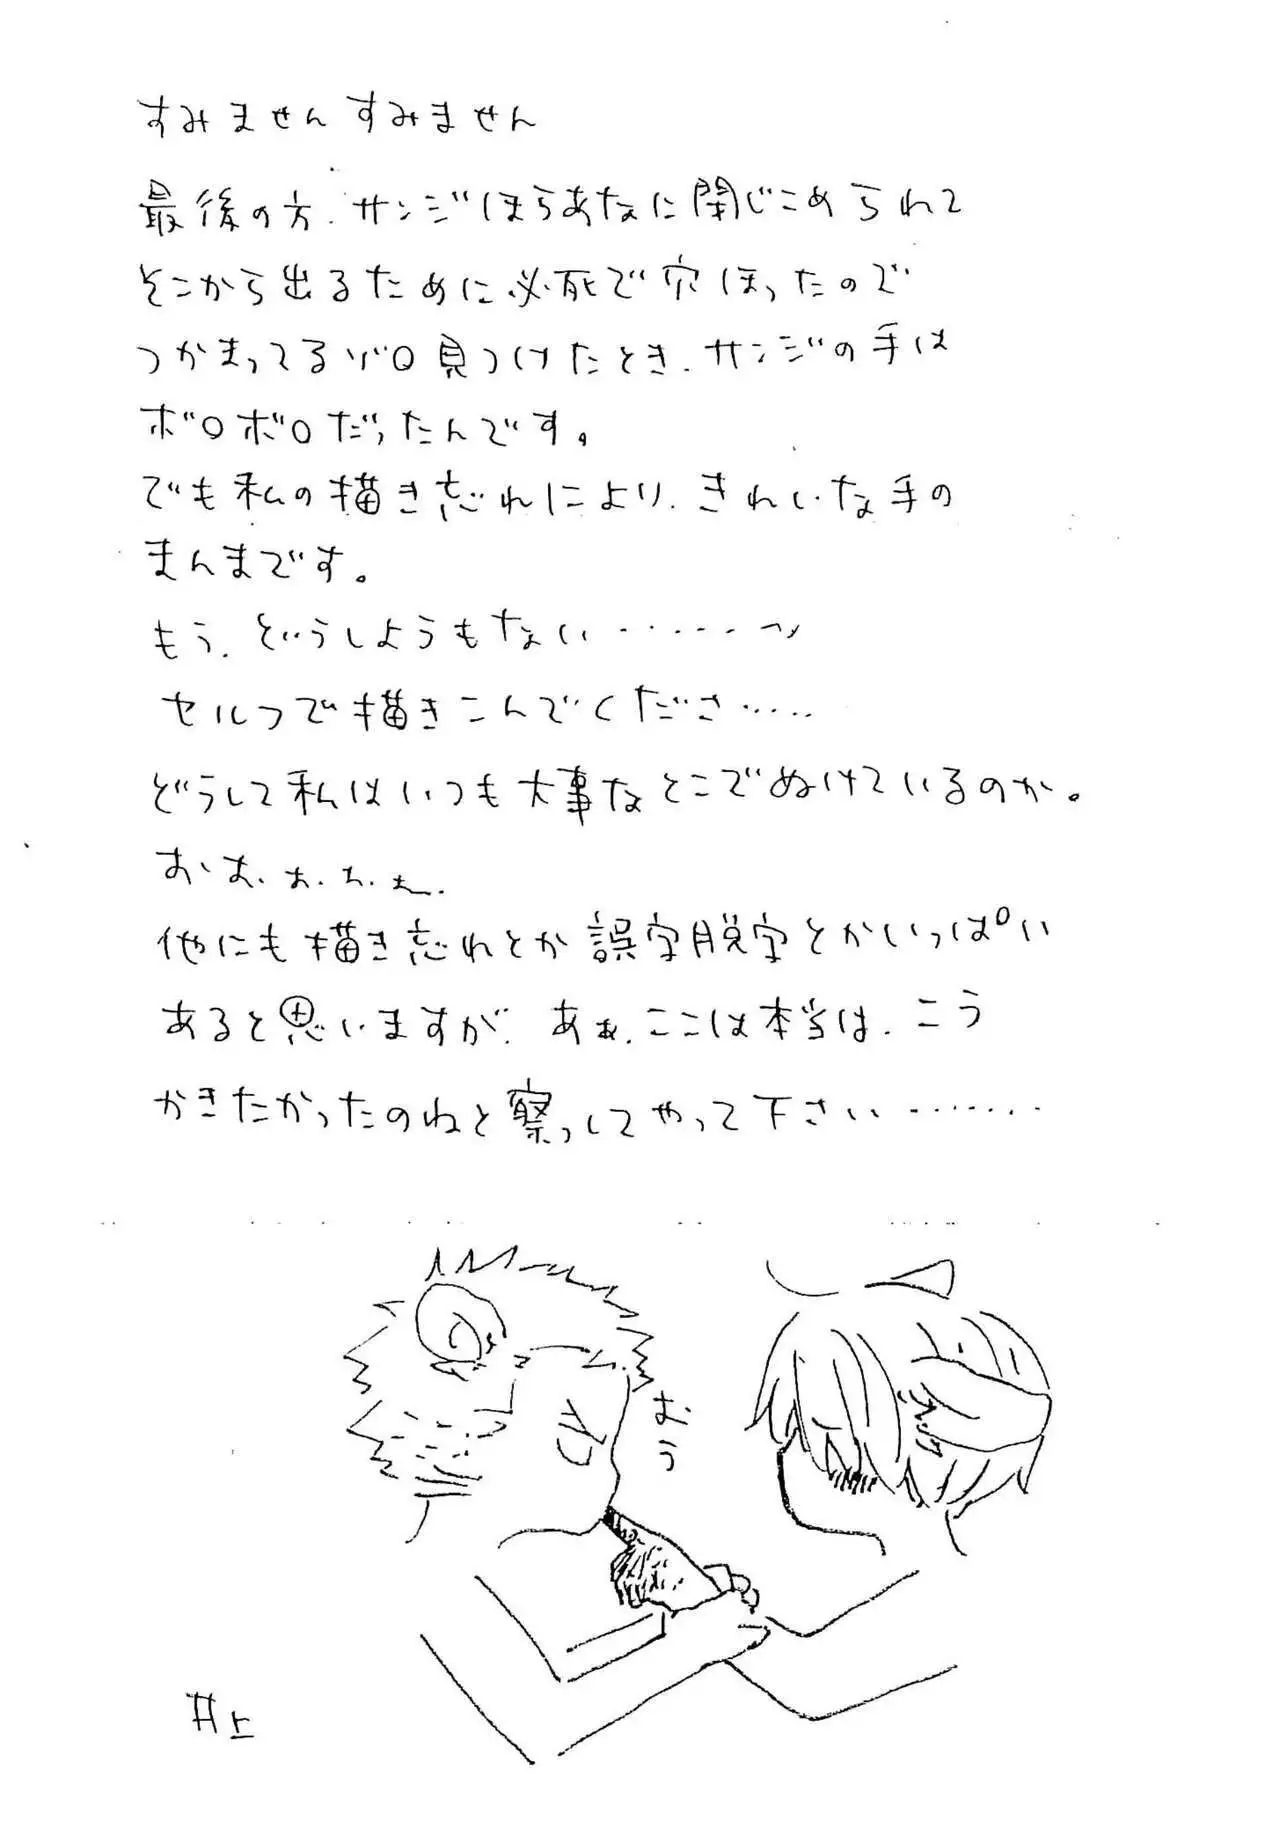 すみませんすみません
最後の方、サンジほらあなに閉じこめられて
そこから出るために必死で穴ほったので
つかまってるゾロ見つけたとき、サンジの手は
ボロボロだったんです。
でも私の描き忘れにより、きれいな手の
まんまです。
もう、どうしようもない……
セルフで描きこんでくださ……
どうして私はいつも大事なとこでぬけているのか。
お、お、ぉ、ぉ、ぉ、
他にも描き忘れとか誤字脱字とかいっぱい
あると思いますが、あぁ、ここは本当は、こう
かきたかったのねと察っしてやって下さい………
おう
井上